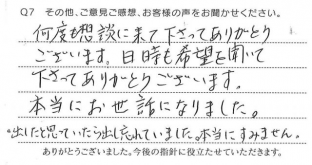 Q7 その他、ご意見ご感想、お客様の声をお聞かせください。
何度も相談に来て下さってありがとう
ございます。日時も希望を聞いて
下さってありがとうございます。
本当にお世話になりました。
*出したと思っていたら出し忘れていました。本当にすみません。
ありがとうございました。今後の指針に役立たせていただきます。